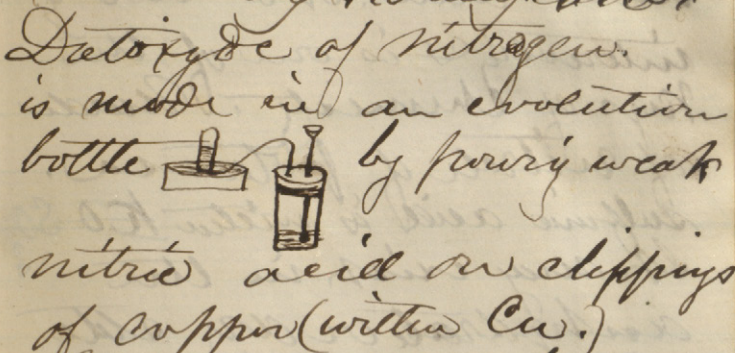 Deutoxyde of nitrogen.
is made in an evolution
bottle by pouring weak
nitric acid on clippings
of copper (written Cu.)